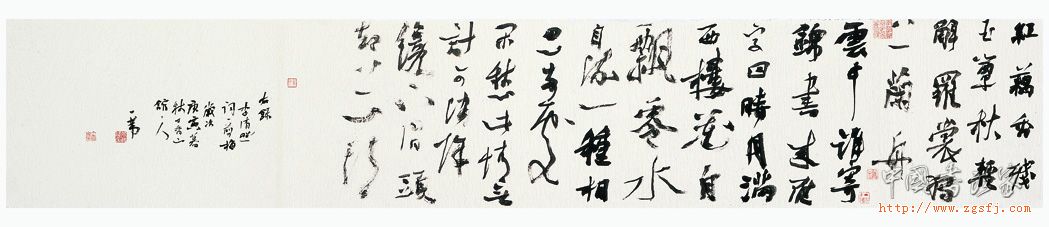 紅藕香殘
玉簟秋輕
解羅裳獨
上蘭舟
雲中誰寄
錦書來雁
字回時月滿
西樓花自
飄零水
自流一種相
思兩處
閑愁此情無
計可消除
纔下眉頭
却上心頭
右錄
李清照
詞一剪梅
歲次
庚寅暮
秋
館人
http://www.zgsfj.com